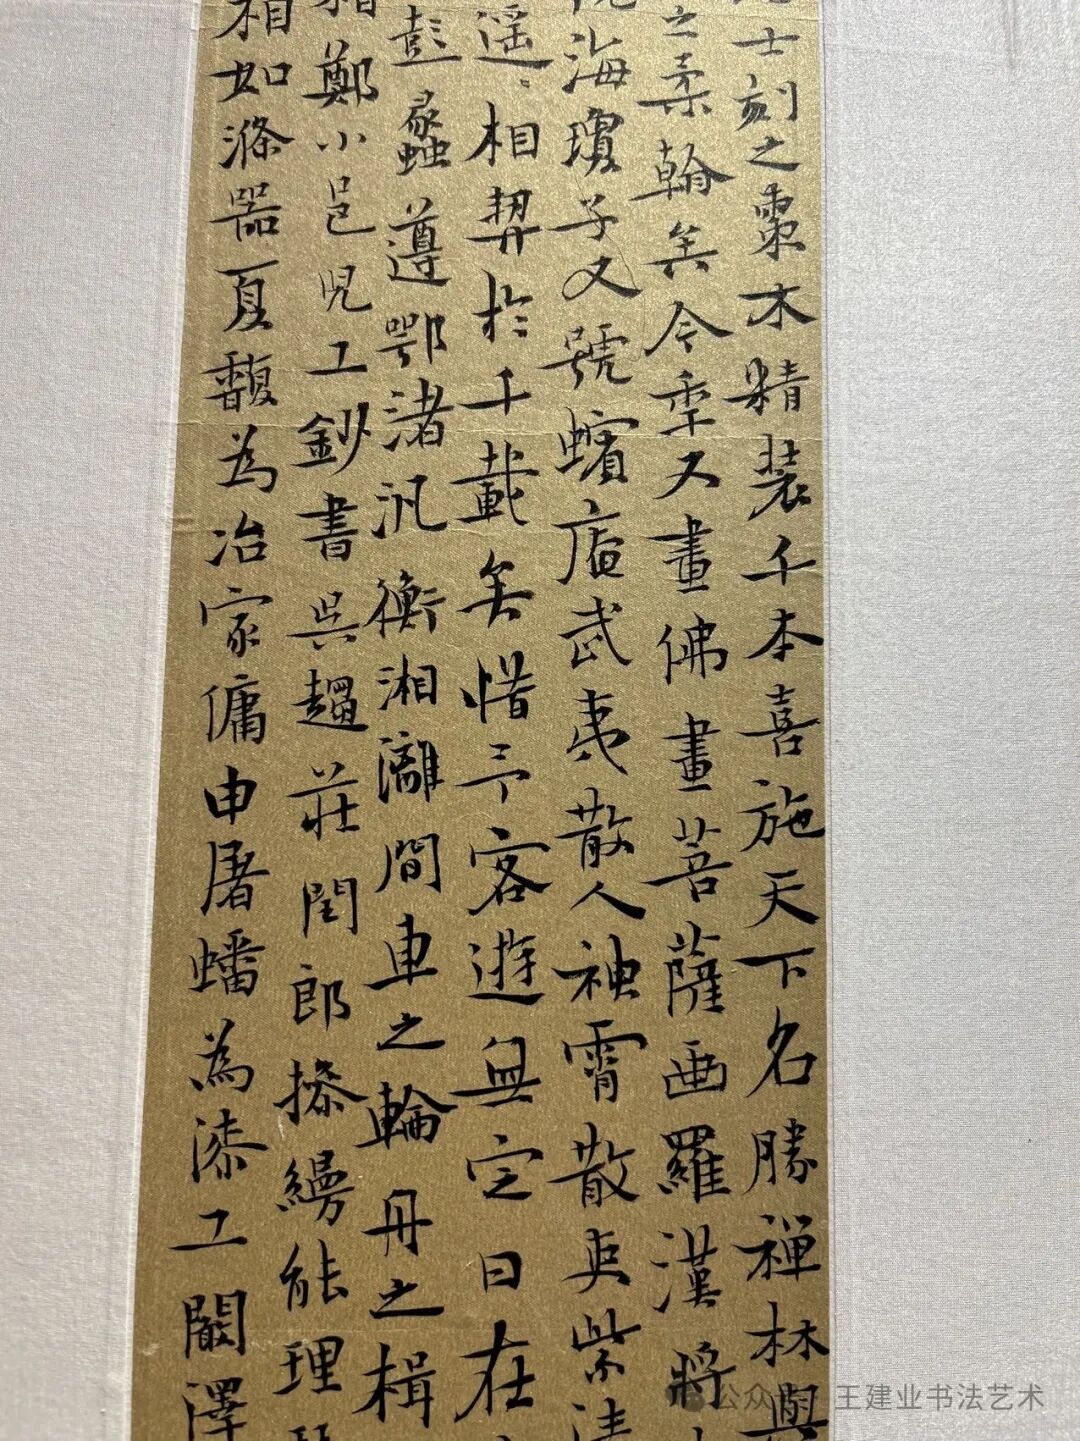 士刻之棗木精装千本喜施天下名勝禅林與
之柔翰矣今季又畫佛畫菩薩画羅漢將
海瓊子又號蠙庵武夷散人神霄散吏紫清
遥相契於千載矣惜予客遊無定日在
彭蠡遵鄂渚汎衡湘灕間車之輪舟之楫
鄭小邑児工鈔書吳趨莊閏郎搽縵能理
相如滌器夏馥為冶家傭申屠蟠為漆工闞澤
公众号 王建业书法艺术